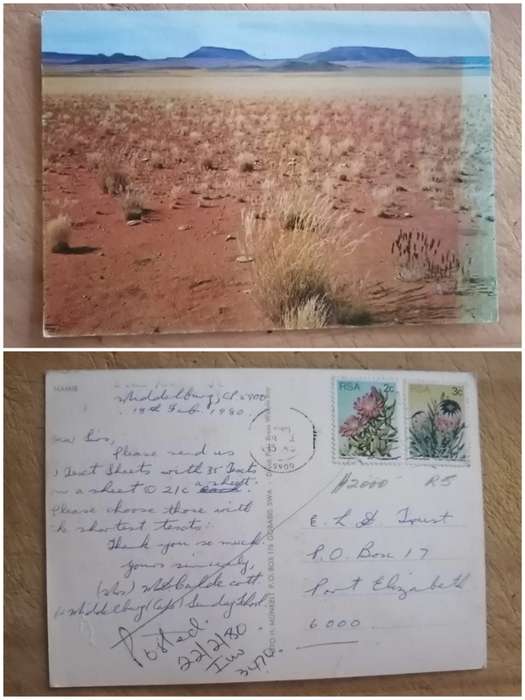 NAMIB
Middelburg, CP 5900
19th Feb. 1980.
Sirs,
Please send us
Text Sheets with 35 Texts
a sheet @ 21c a sheet.
Please choose those with
the shortest texts.
Thank you so much!
Yours sincerely,
(Mrs)
Middelburg (Cape) Sunday School
Posted.
22/2/80
3470
RSA 2c
RSA 3c
5900
#2000 R5
E. L. S. Trust
P.O. Box 17
Port Elizabeth
6000
FOTO H. MÜNKEL P.O. BOX 176 GOBABIS SWA